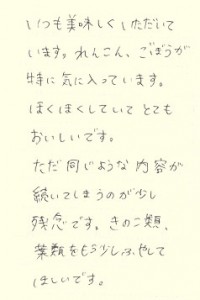 いつも美味しくいただいて
います。れんこん、ごぼうが
特に気に入っています。
ほくほくしていてとても
おいしいです。
ただ同じような内容が
続いてしまうのが少し
残念です。きのこ類、
葉類をもう少しふやして
ほしいです。